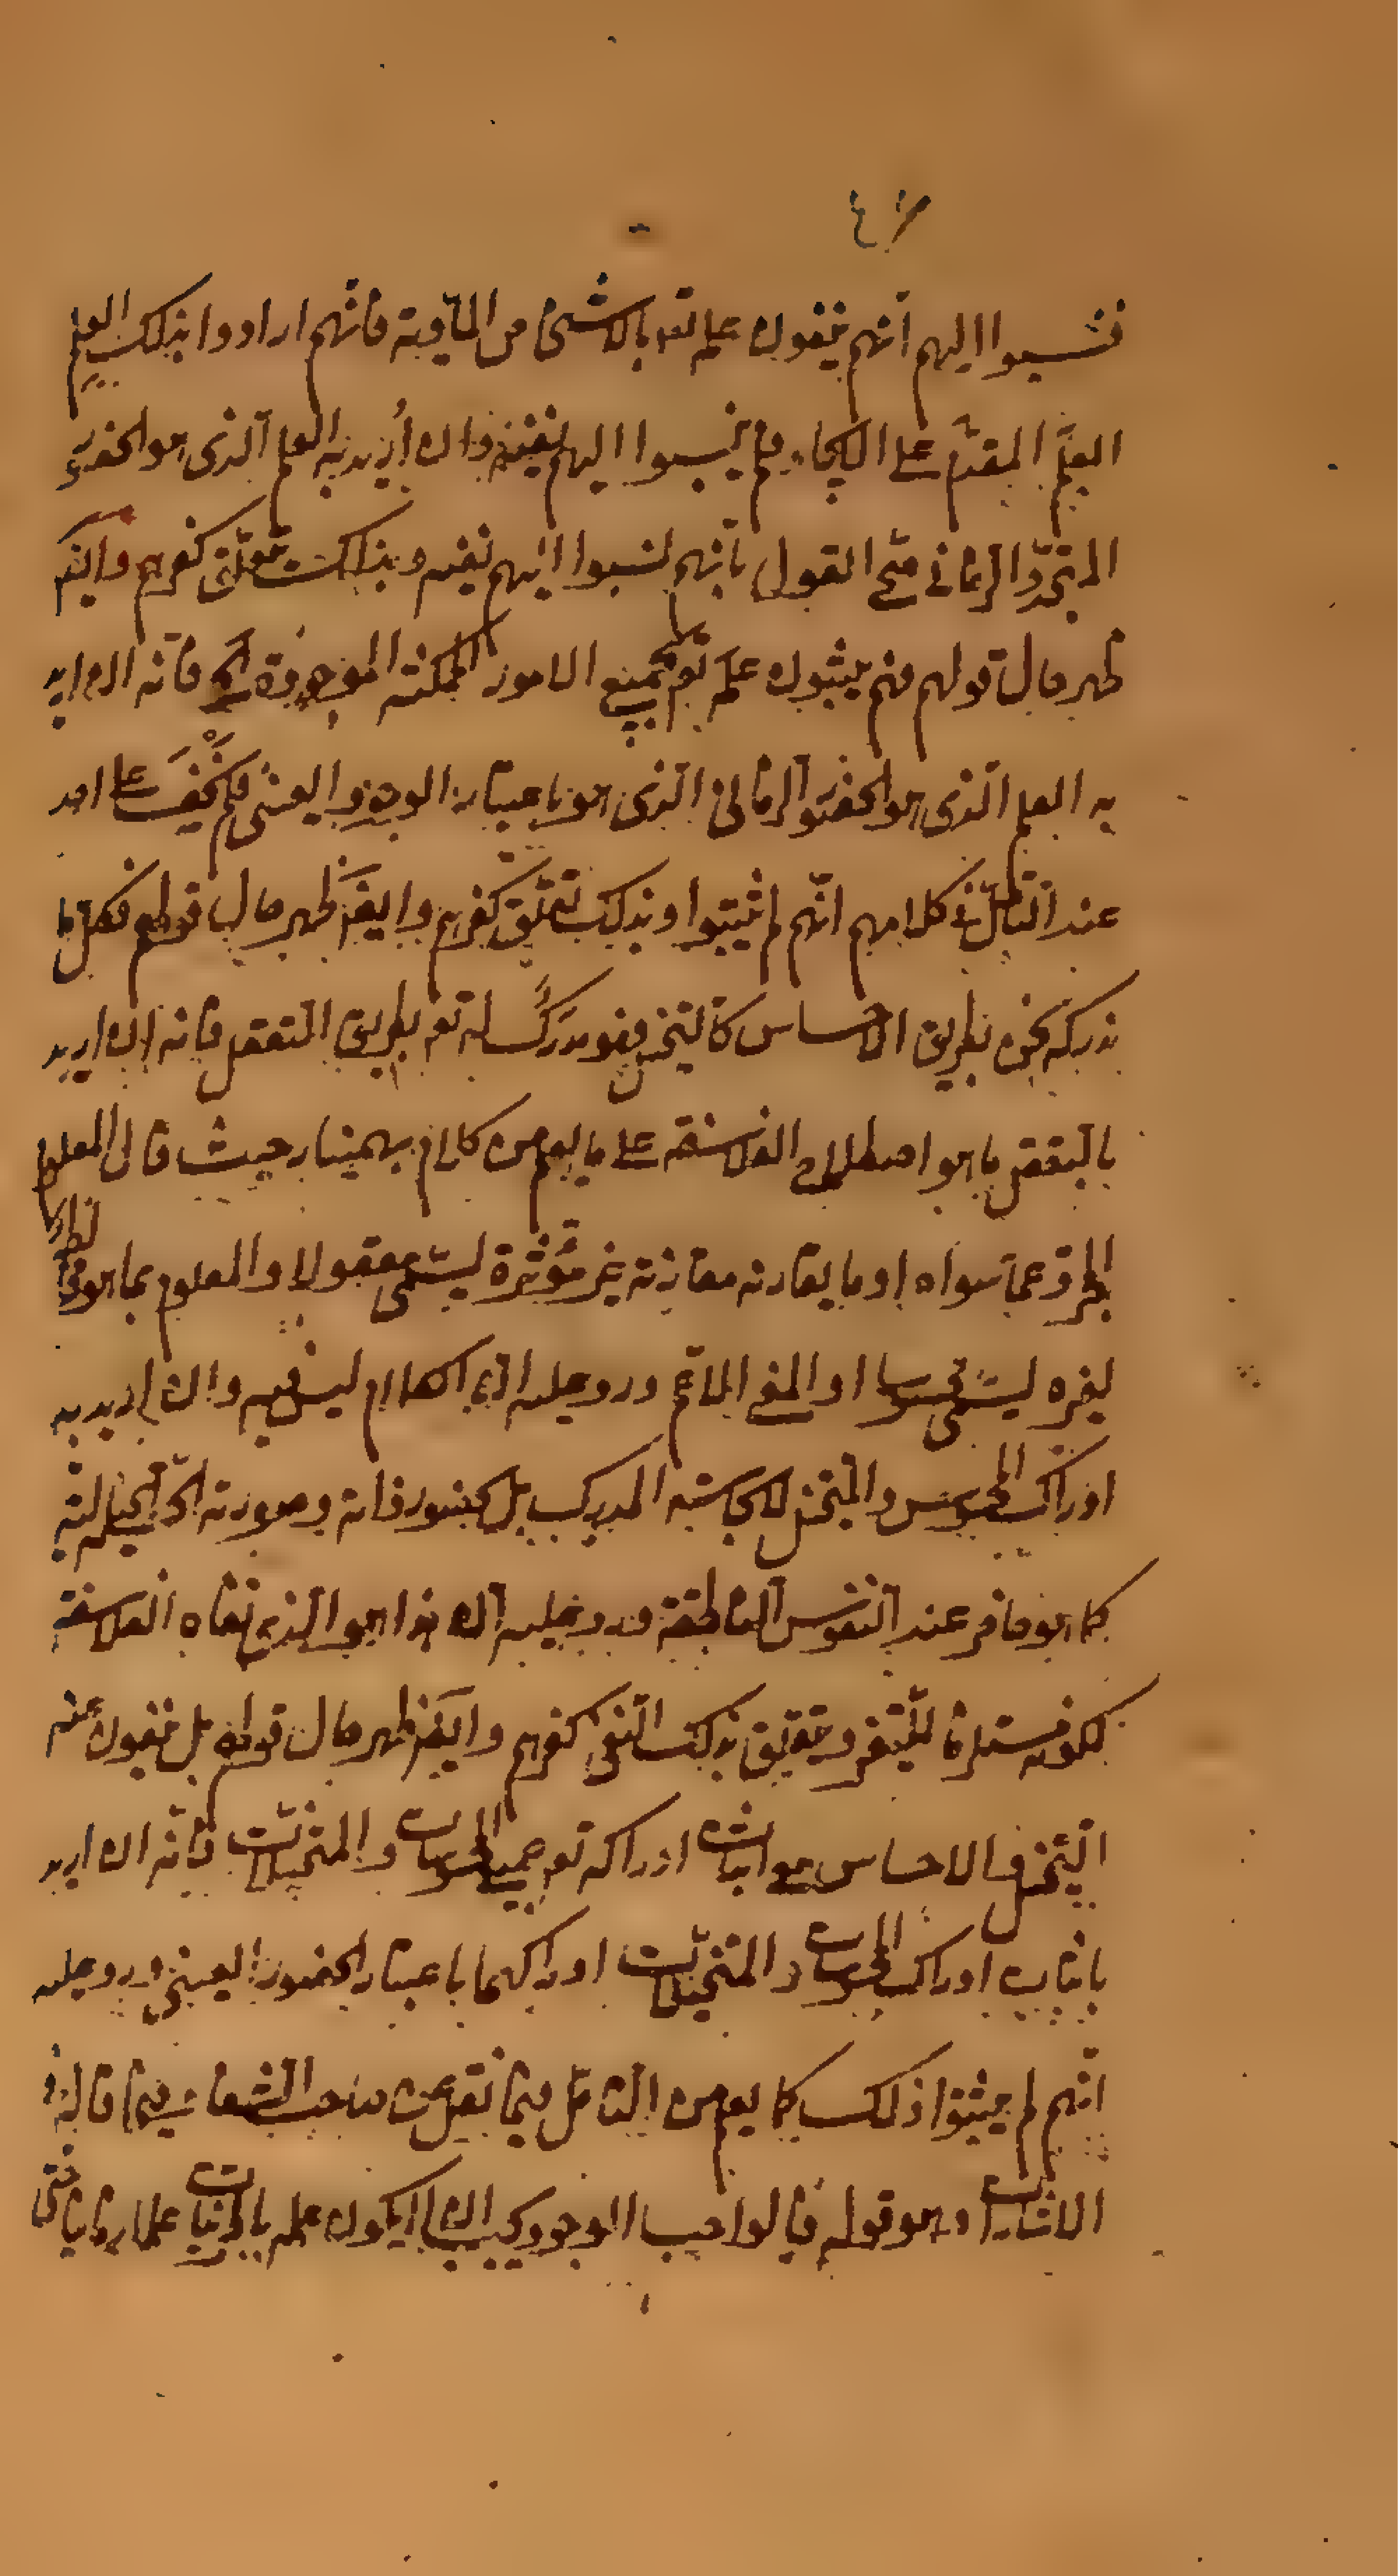 فنسبوا اليهم انهم ينفون علمه تع بالاشخاص المادية فانهم ارادوا بذلك العلم
العلم المقدم على الايجاد فلم ينسبوا اليهم نفيه وان أريد به العلم الذى هو الحضور
المتجدد الزمانى صح القول بانهم نسبوا اليهم نفيه وبذلك تعلق كفرهم وايضا
ظهر حال قولهم فهم يثبتون علمه تع بجميع الامور الممكنة الموجودة الخ فانه ان اريد
به العلم الذى هو الحضور الزمانى الذى هو باعتبار الوجود العينى فلم يَخْفَ على احد
عند التامل فى كلامهم انهم لم يثبتوا وبذلك تعلق كفرهم وايضا ظهر حال قولهم فكل ما
ندركه نحن بطريق الاحساس كالتخيل فهو مدرَكٌ له تع بطريق التعقل فانه ان اريد
بالتعقل ما هو اصطلاح الفلاسفة على ما يعلم من كلام بهمنيار حيث قال المعلوم
المجرد عما سواه او ما يقارنه مقارنة غير مؤثرة يسمى معقولا والمعلوم بما هو
لغيره يسمى محسوسا او المعنى الاعم ورد عليه ان الكلام ليس فيه وان اريد به
ادراك المحسوس والمتخيل لا بحاسته المدرك بل بحضور ذاته وصورته
كما هو حاضر عند النفوس الناطقة ورد عليه ان هذا هو الذى نفاه الفلاسفة
لكونه مستلزما للتغير وتعلق بذلك النفى كفرهم وايضا ظهر حال قولهم بل ينفون عنه
التخيل والاحساس مع اثبات ادراكه تع جميع المحسوسات والمتخيلات فانه ان اريد
باثبات ادراك المحسوسات والمتخيلات ادراكهما باعتبار الحضور العينى ورد عليه
انهم لم يثبتوا ذلك كما يعلم من التامل فيما نقل عن صاحب الشفاء فيما قاله فى
الاشارات وهو قوله فالواجب الوجود يجب ان لا يكون علمه بالجزئيات علما زمانيا حتى